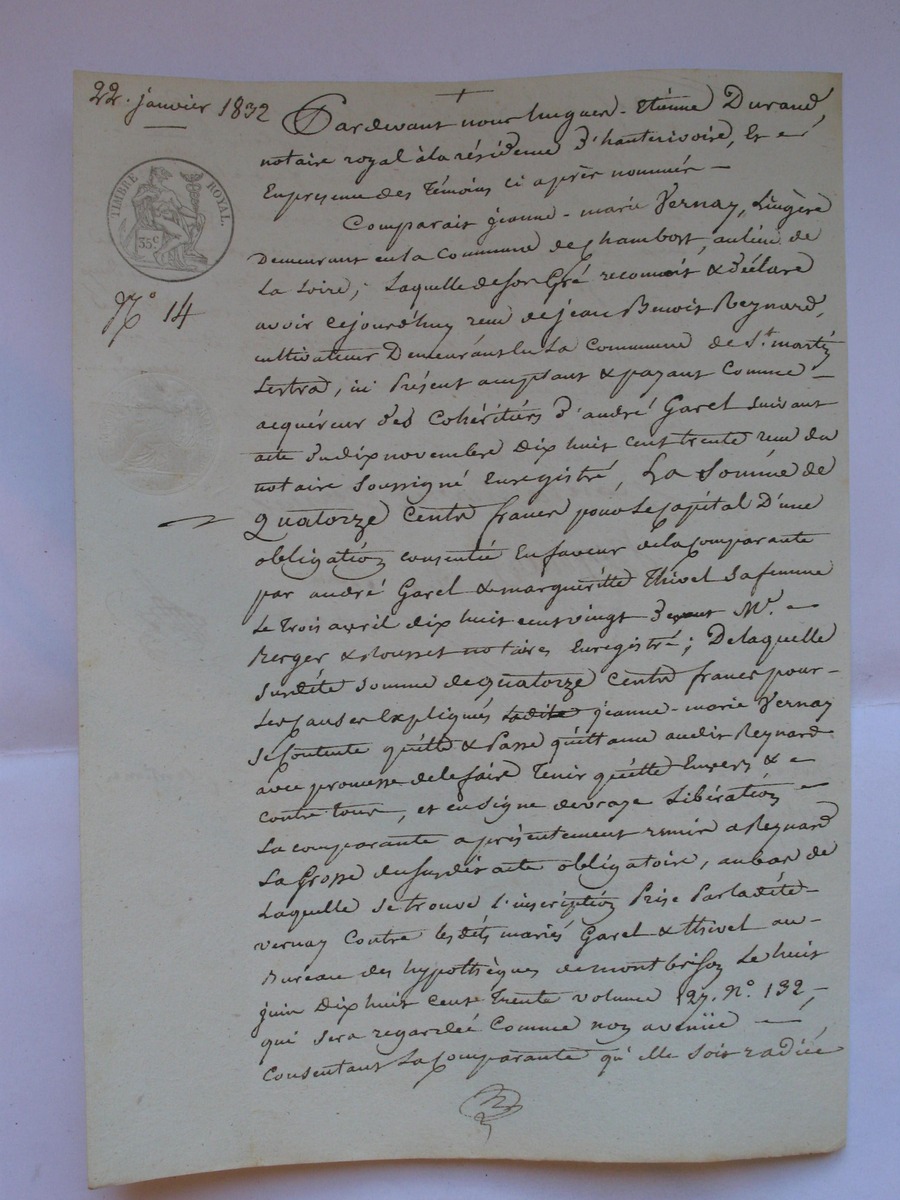 22. janvier 1832
TIMBRE ROYAL.
35 c.
N.° 14
Pardevant nous hugues-Etienne Durand,
notaire royal à la résidence d'hauterivoire, Et en
Enpresence des Témoins ci après nommés —
Comparait jeanne-marie Vernay, Lingère
Demeurant en la Commune de Chambost, au lieu de
La Loire; Laquelle de son Gré reconnoit & déclare
avoir cejourd'huy recu de jean Benoit Reynard,
cultivateur Demeurant en La Commune de St. martin
Lestra, ici Présent acceptant & payant Comme —
acquéreur des Cohéritiers d'andré Garel suivant
acte du dix novembre Dix huit cent trente recu du
notaire soussigné Enregistré, La Somme de
Quatorze Cents francs pour Le Capital D'une
obligation consentie En faveur dela Comparante
par andré Garel & margueritte Thivel sa femme
Le Trois avril dix huit cent vingt devant Mes. —
Berger & Rousset notaires Enregistré; De laquelle
Susdite Somme de quatorze Cents francs pour —
Les causes Expliqués ladite jeanne-marie Vernay
Se Contente quitte & Passe quittance audit Reynard
avec promesse dele faire Tenir quitte Envers & —
contre tous, et en signe de vraye Libération —
La comparante a présentement remis a Reynard
La Grosse du susdit acte obligatoire, au bas de
Laquelle se trouve l'inscription Prise Par ladite —
vernay Contre lesdits mariés Garel & thivel au —
Bureau des hypothèques de montbrison Le huit
juin Dix huit cent Trente volume 127. N.° 132 —,
qui sera regardée Comme non avenüe —
Consentant La Comparante qu'elle soit radiée